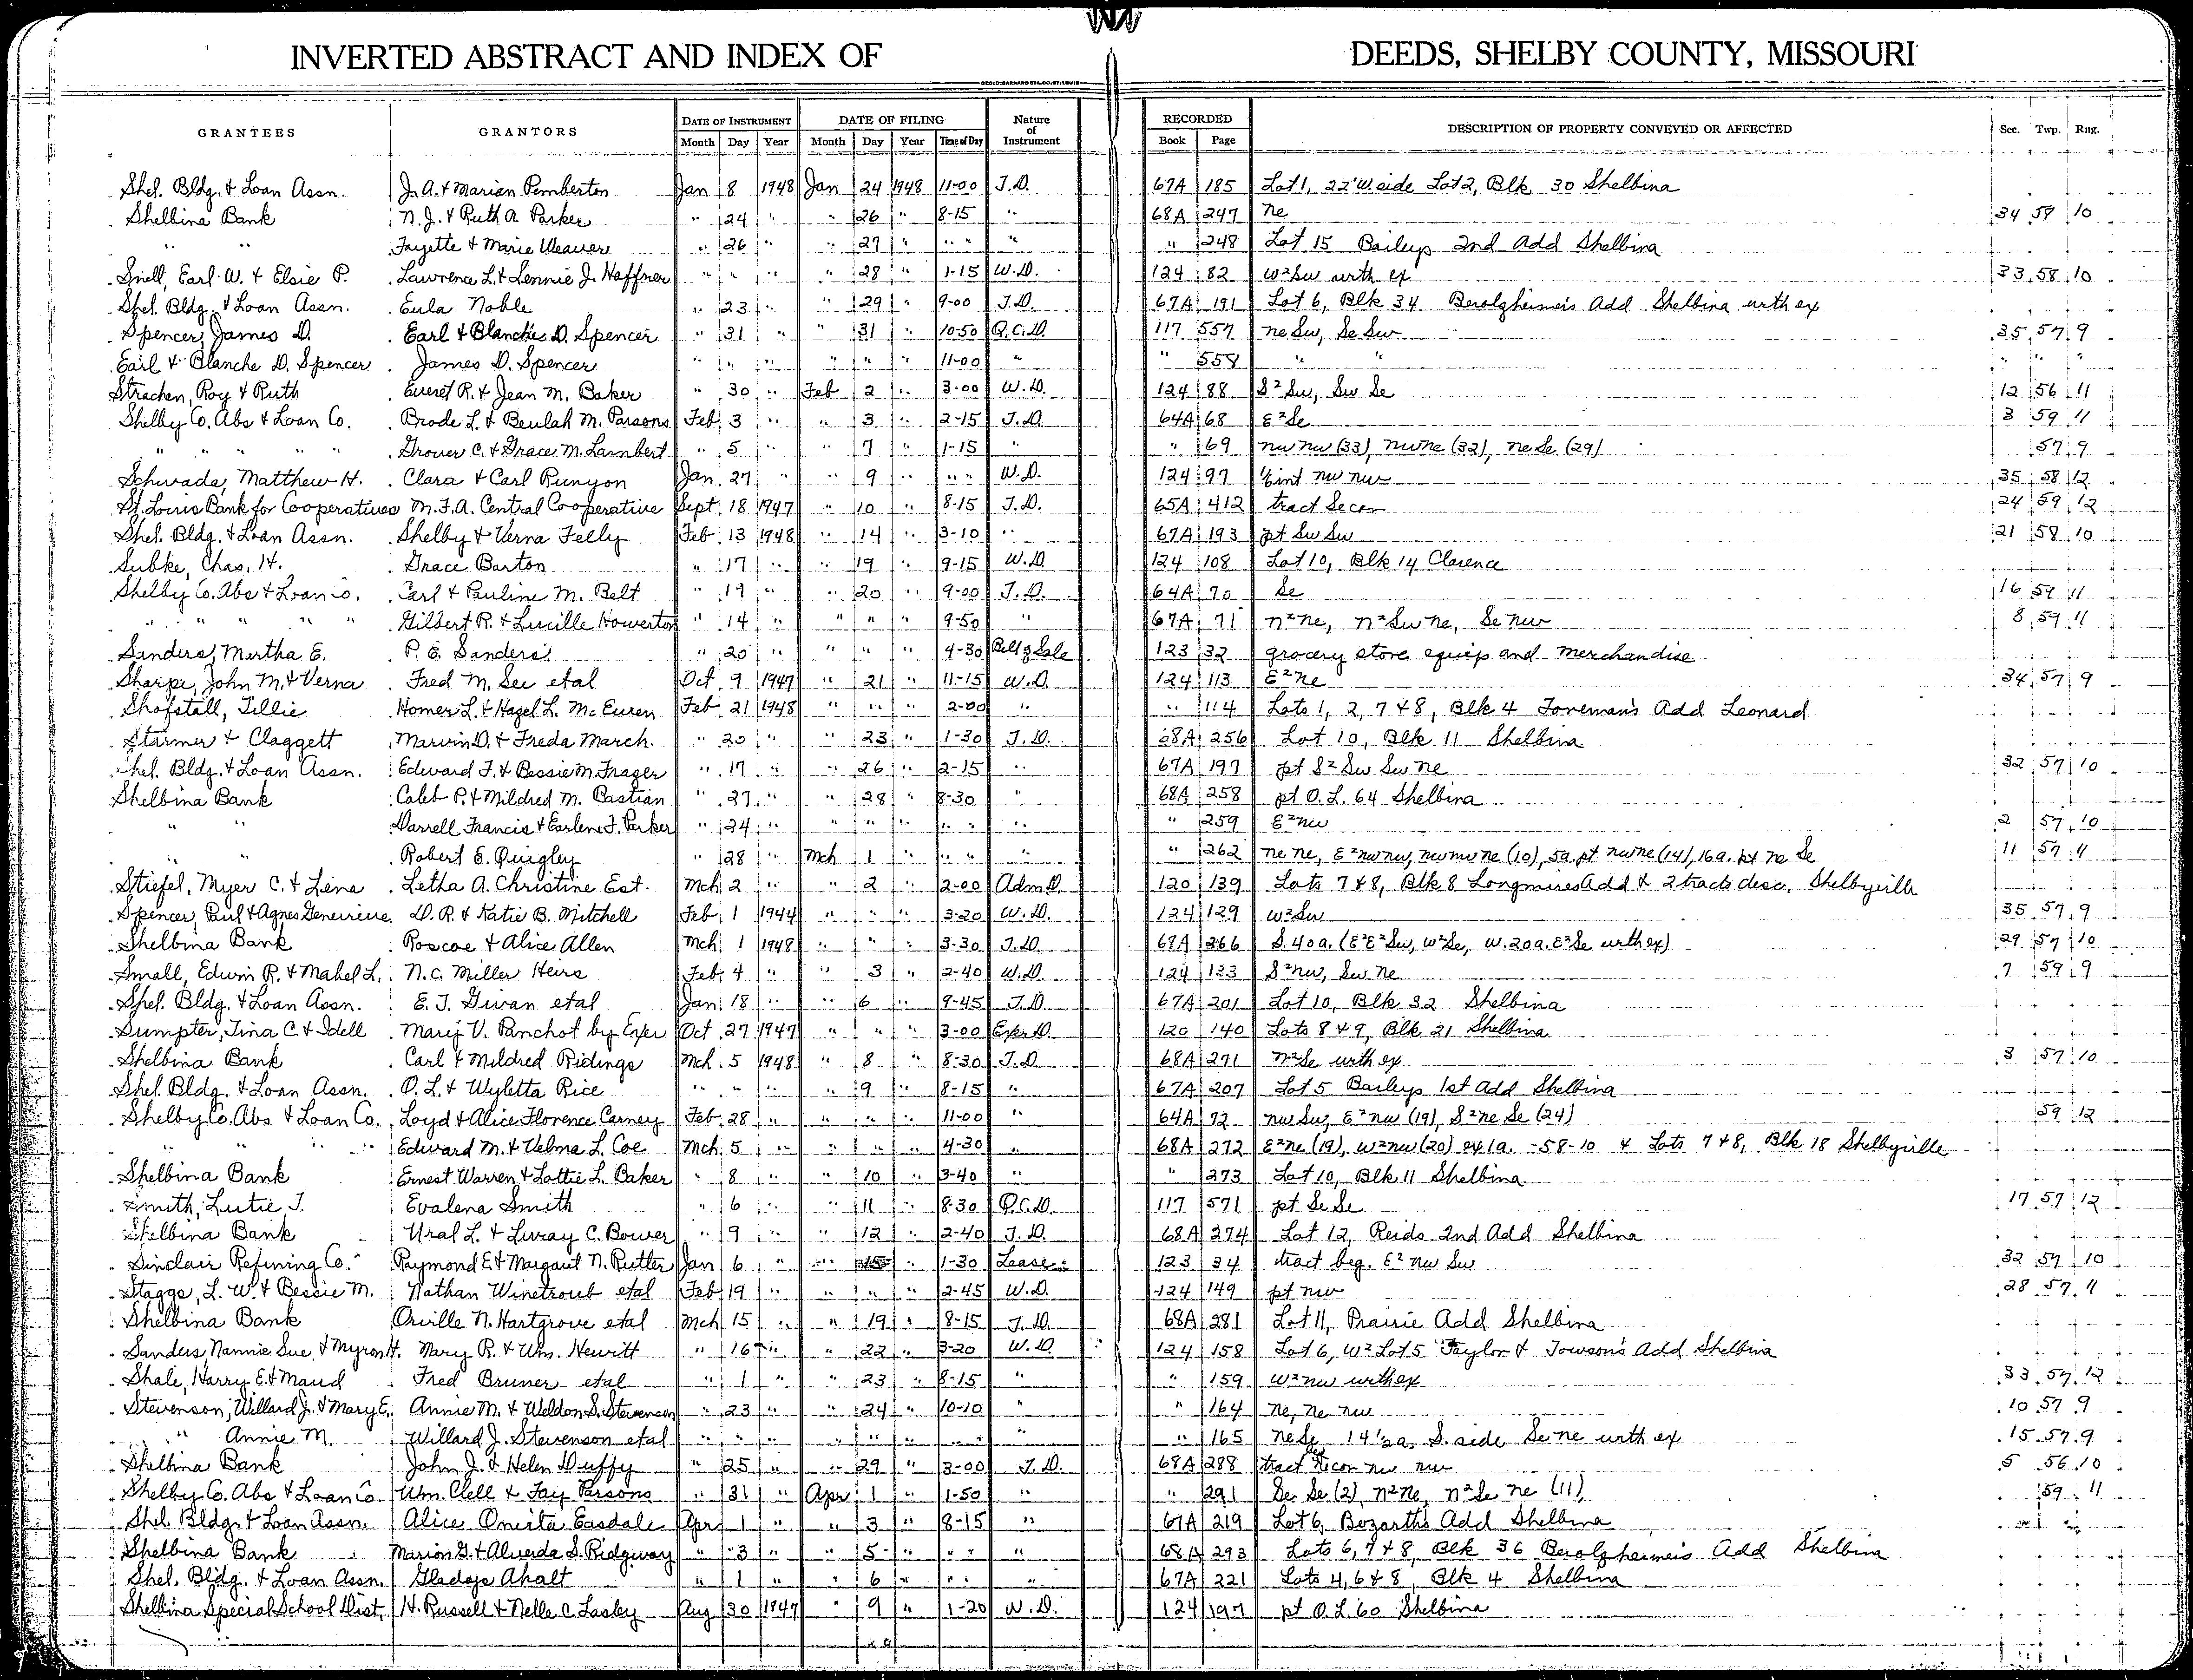 INVERTED ABSTRACT AND INDEX OF DEEDS, SHELBY COUNTY, MISSOURI
GEO. D. BARNARD STA. CO. ST. LOUIS
GRANTEES GRANTORS DATE OF INSTRUMENT DATE OF FILING Nature of Instrument RECORDED DESCRIPTION OF PROPERTY CONVEYED OR AFFECTED Sec. Twp. Rng.
Month Day Year Month Day Year Time of Day Book Page
Shel. Bldg. & Loan Assn. J. A. & Marian Pemberton Jan 8 1948 Jan 24 1948 11-00 T.D. 67A 185 Lot 1, 22' W. side Lot 2, Blk 30 Shelbina
Shelbina Bank N. J. & Ruth A. Parker " 24 " " 26 " 8-15 " 68A 247 ne 34 58 10
" " Fayette & Marie Weaver " 26 " " 27 " " " " " 248 Lot 15 Baileys 2nd Add Shelbina
Snell, Earl W. & Elsie P. Lawrence L. & Lennie J. Haffner " " " " 28 " 1-15 W.D. 124 82 W²Sw with ex 33 58 10
Shel. Bldg. & Loan Assn. Eula Noble " 23 " " 29 " 9-00 T.D. 67A 191 Lot 6, Blk 34 Berolzheimeis Add Shelbina with ex
Spencer, James D. Earl & Blanche D. Spencer " 31 " " 31 " 10-50 Q.C.D. 117 557 ne Sw, Se Sw 35 57 9
Earl & Blanche D. Spencer James D. Spencer " " " " " " 11-00 " " 558 " " " " "
Strachan, Roy & Ruth Everet R. & Jean M. Baker " 30 " Feb 2 " 3-00 W.D. 124 88 S²Sw, Sw Se 12 56 11
Shelby Co. Abs & Loan Co. Brode L. & Beulah M. Parsons Feb 3 " " 3 " 2-15 T.D. 64A 68 E²Se 3 59 11
" " " " " Grover C. & Grace M. Lambert " 5 " " 7 " 1-15 " " 69 nw nw (33), nw ne (32), ne Se (29) 57 9
Schwada, Matthew H. Clara & Carl Runyon Jan. 27 " " 9 " " " W.D. 124 97 int nw nw 35 58 12
St. Louis Bank for Cooperatives M. F. A. Central Cooperative Sept. 18 1947 " 10 8-15 T.D. 65A 412 tract Secor 24 59 12
Shel. Bldg. & Loan Assn. Shelby & Verna Felly Feb. 13 1948 " 14 " 3-10 " 67A 193 pt Sw Sw 21 58 10
Subke, Chas. H. Grace Barton " 17 " " 19 " 9-15 W.D. 124 108 Lot 10, Blk 14 Clarence
Shelby Co. Abs & Loan Co. Carl & Pauline M. Belt " 19 " " 20 " 9-00 T.D. 64A 70 Se 16 59 11
" " " " " Gilbert R. & Lucille Howerton " 14 " " " " 9-50 " 67A 71 n²ne, n²Sw ne, Se nw 8 59 11
Sanders, Mertha E. P. E. Sanders " 20 " " " " 4-30 Bill of Sale 123 32 grocery store equip and merchandise
Sharpe, John M. & Verna Fred M. See etal Oct. 9 1947 " 21 " 11-15 W.D. 124 113 E²ne 34 57 9
Shofstall, Tillie Homer L. & Hazel L. McEuen Feb. 21 1948 " " " 2-00 " " 114 Lots 1, 2, 7 & 8, Blk 4 Foreman's Add Leonard
Starmer & Claggett Marvin D. & Freda March. " 20 " " 23 " 1-30 T.D. 68A 256 Lot 10, Blk 11 Shelbina
Shel. Bldg. & Loan Assn. Edward F. & Bessie M. Frager " 17 " " 26 " 2-15 " 67A 197 pt S²Sw Sw ne 32 57 10
Shelbina Bank Caleb P. & Mildred M. Bastian " 27 " " 28 " 8-30 " 68A 258 pt O.L. 64 Shelbina
" " Darrell Francis & Earlene F. Parker " 24 " " " " " " " " 259 E²nw 2 57 10
" " Robert E. Quigley " 28 " Mch 1 " " " " " 262 ne ne, E²nw nw, nw nw ne (10), 5a. pt nw ne (14), 16a. pt ne Se 11 57 11
Stiefel, Myer C. & Lena Letha A. Christine Est. Mch. 2 " " 2 " 2-00 Adm. D. 120 139 Lots 7 & 8, Blk 8 Longmires Add & 2 tracts desc. Shelbyville
Spencer, Paul & Agnes Genevieve D. R. & Katie B. Mitchell Feb. 1 1944 " " " 3-20 W.D. 124 129 W²Sw 35 57 9
Shelbina Bank Roscoe & Alice Allen Mch. 1 1948 " " " 3-30 T.D. 68A 266 S. 40a. (E²E²Sw, W²Se, W. 20a. E²Se with ex) 29 57 10
Small, Edwin R. & Mabel L. N. C. Miller Heirs Feb. 4 " " 3 " 2-40 W.D. 124 133 S²nw, Sw ne 7 59 9
Shel. Bldg. & Loan Assn. E. T. Givan etal Jan. 18 " " 6 " 9-45 T.D. 67A 201 Lot 10, Blk 32 Shelbina
Sumpter, Tina C. & Idell Mary V. Panchot by Exer Oct. 27 1947 " " " 3-00 Exer D. 120 140 Lots 8 & 9, Blk 21 Shelbina
Shelbina Bank Carl & Mildred Ridings Mch. 5 1948 " 8 " 8-30 T.D. 68A 271 n²Se with ex 3 57 10
Shel. Bldg. & Loan Assn. O. L. & Wyletta Rice " " " " 9 " 8-15 " 67A 207 Lot 5 Baileys 1st Add Shelbina
Shelby Co. Abs & Loan Co. Loyd & Alice Florence Carney Feb. 28 " " " " 11-00 " 64A 72 nw Sw, E²nw (19), S²ne Se (24) 59 12
" " " " Edward M. & Velma L. Coe Mch. 5 " " " " 4-30 " 68A 272 E²ne (19), W²nw (20) ex 1a. -58-10 & Lots 7 & 8, Blk 18 Shelbyville
Shelbina Bank Ernest Warren & Lottie L. Baker " 8 " " 10 " 3-40 " " 273 Lot 10, Blk 11 Shelbina
Smith, Lutie J. Evalena Smith " 6 " " 11 " 8-30 Q.C.D. 117 571 pt Se Se 17 57 12
Shelbina Bank Ural L. & Luray C. Bower " 9 " " 12 " 2-40 T.D. 68A 274 Lot 12, Reids 2nd Add Shelbina
Sinclair Refining Co. Raymond E & Margaret N. Rutter Jan 6 " " 15 " 1-30 Lease 123 34 tract beg. E² nw Sw 32 57 10
Staggs, L. W. & Bessie M. Nathan Winetroub etal Feb 19 " " " " 2-45 W.D. 124 149 pt nw 28 57 11
Shelbina Bank Orville N. Hartgrove etal Mch 15 " " 19 " 8-15 T.D. 68A 281 Lot 11, Prairie Add Shelbina
Sanders, Nannie Sue & Myron H. Mary R. & Wm. Hewitt " 16 " " 22 " 3-20 W.D. 124 158 Lot 6, W² Lot 5 Taylor & Towson's Add Shelbina
Shale, Harry E. & Maud Fred Bruner etal " 1 " " 23 " 8-15 " " 159 W²nw with ex 33 57 12
Stevenson, Willard J. & Mary E. Annie M. & Weldon S. Stevenson " 23 " " 24 " 10-10 " " 164 ne, ne nw 10 57 9
" Annie M. Willard J. Stevenson etal " " " " " " " " " " 165 ne Se 14½a. S. side Se ne with ex 15 57 9
Shelbina Bank John J. & Helen Duffy " 25 " " 29 " 3-00 T.D. 68A 288 tract cor nw nw 5 56 10
Shelby Co. Abs & Loan Co. Wm. Clell & Fay Parsons " 31 " Apr 1 " 1-50 " " 291 Se Se (2), n²ne, n²Se ne (11) 59 11
Shel. Bldg. & Loan Assn. Alice Oneita Easdale Apr 1 " " 3 " 8-15 " 67A 219 Lot 6, Bozarths Add Shelbina
Shelbina Bank Marion G. & Alverda S. Ridgway " 3 " " 5 " " " " 68A 293 Lots 6, 7 & 8, Blk 36 Berolzheimeis Add Shelbina
Shel. Bldg. & Loan Assn. Gladys Ahalt " 1 " " 6 " " " " 67A 221 Lots 4, 6 & 8, Blk 4 Shelbina
Shelbina Special School Dist. H. Russell & Nelle C. Lasley Aug 30 1947 " 9 " 1-20 W.D. 124 197 pt O.L. 60 Shelbina